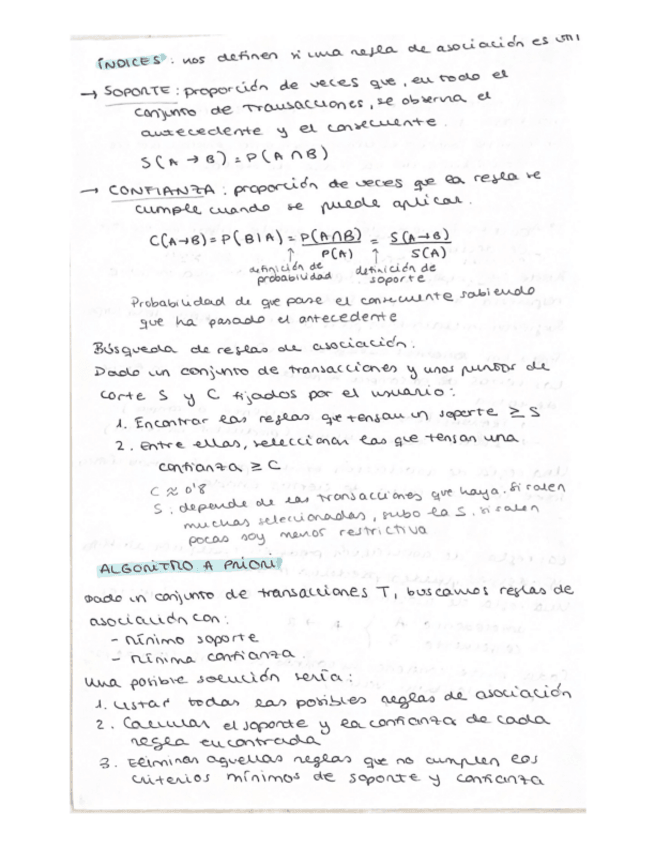 ÍNDICES: nos definen si una regla de asociación es
→ SOPORTE: proporción de veces que, en todo el
conjunto de transacciones, se observa el
antecedente y el consecuente.
S(A → B) = P(A ∩ B)
→ CONFIANZA: proporción de veces que la regla se
cumple cuando se puede aplicar.
C(A→B) = P(B|A) = P(A∩B) / P(A) = S(A→B) / S(A)
↑ ↑
definición de probabilidad definición de soporte
Probabilidad de que pase el consecuente sabiendo
que ha pasado el antecedente
Búsqueda de reglas de asociación:
Dado un conjunto de transacciones y unos puntos de
corte S y C fijados por el usuario:
1. Encontrar las reglas que tengan un soporte ≥ S
2. Entre ellas, seleccionar las que tengan una
confianza ≥ C
C ≈ 0'8
S: depende de las transacciones que haya. Si salen
muchas seleccionadas, subo la S, si salen
pocas soy menor restrictiva
ALGORITMO A PRIORI
Dado un conjunto de transacciones T, buscamos reglas de
asociación con:
- Mínimo soporte
- Mínima confianza.
Una posible solución sería:
1. Listar todas las posibles reglas de asociación
2. Calcular el soporte y la confianza de cada
regla encontrada
3. Eliminar aquellas reglas que no cumplen los
criterios mínimos de soporte y confianza